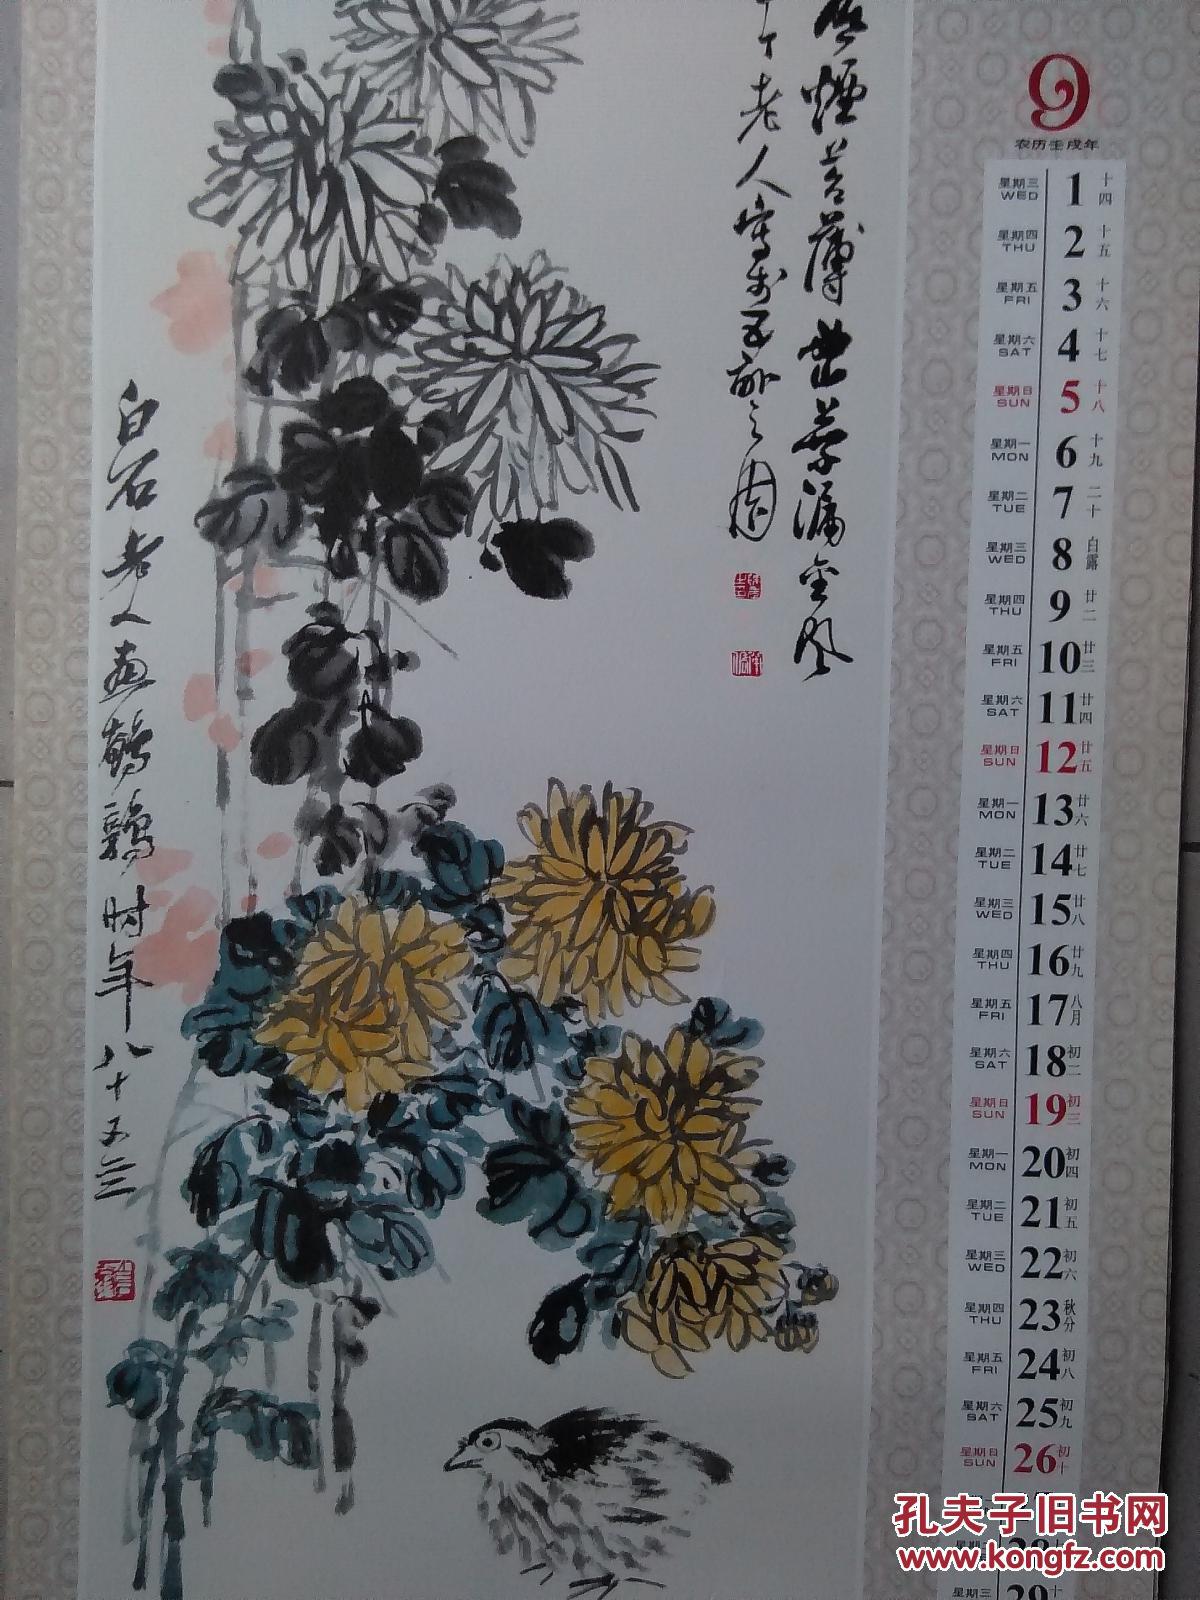 白石老人画鹌鹑时年八十五岁
老人
9
农历壬戌年
星期三 WED 1 十四
星期四 THU 2 十五
星期五 FRI 3 十六
星期六 SAT 4 十七
星期日 SUN 5 十八
星期一 MON 6 十九
星期二 TUE 7 二十
星期三 WED 8 白露
星期四 THU 9 廿二
星期五 FRI 10 廿三
星期六 SAT 11 廿四
星期日 SUN 12 廿五
星期一 MON 13 廿六
星期二 TUE 14 廿七
星期三 WED 15 廿八
星期四 THU 16 廿九
星期五 FRI 17 八月
星期六 SAT 18 初二
星期日 SUN 19 初三
星期一 MON 20 初四
星期二 TUE 21 初五
星期三 WED 22 初六
星期四 THU 23 秋分
星期五 FRI 24 初八
星期六 SAT 25 初九
星期日 SUN 26 初十
28
星期三 29
孔夫子旧书网
www.kongfz.com